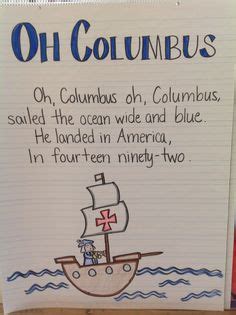 OH COLUMBUS
Oh, Columbus oh, Columbus,
sailed the ocean wide and blue.
He landed in America,
In fourteen ninety-two.